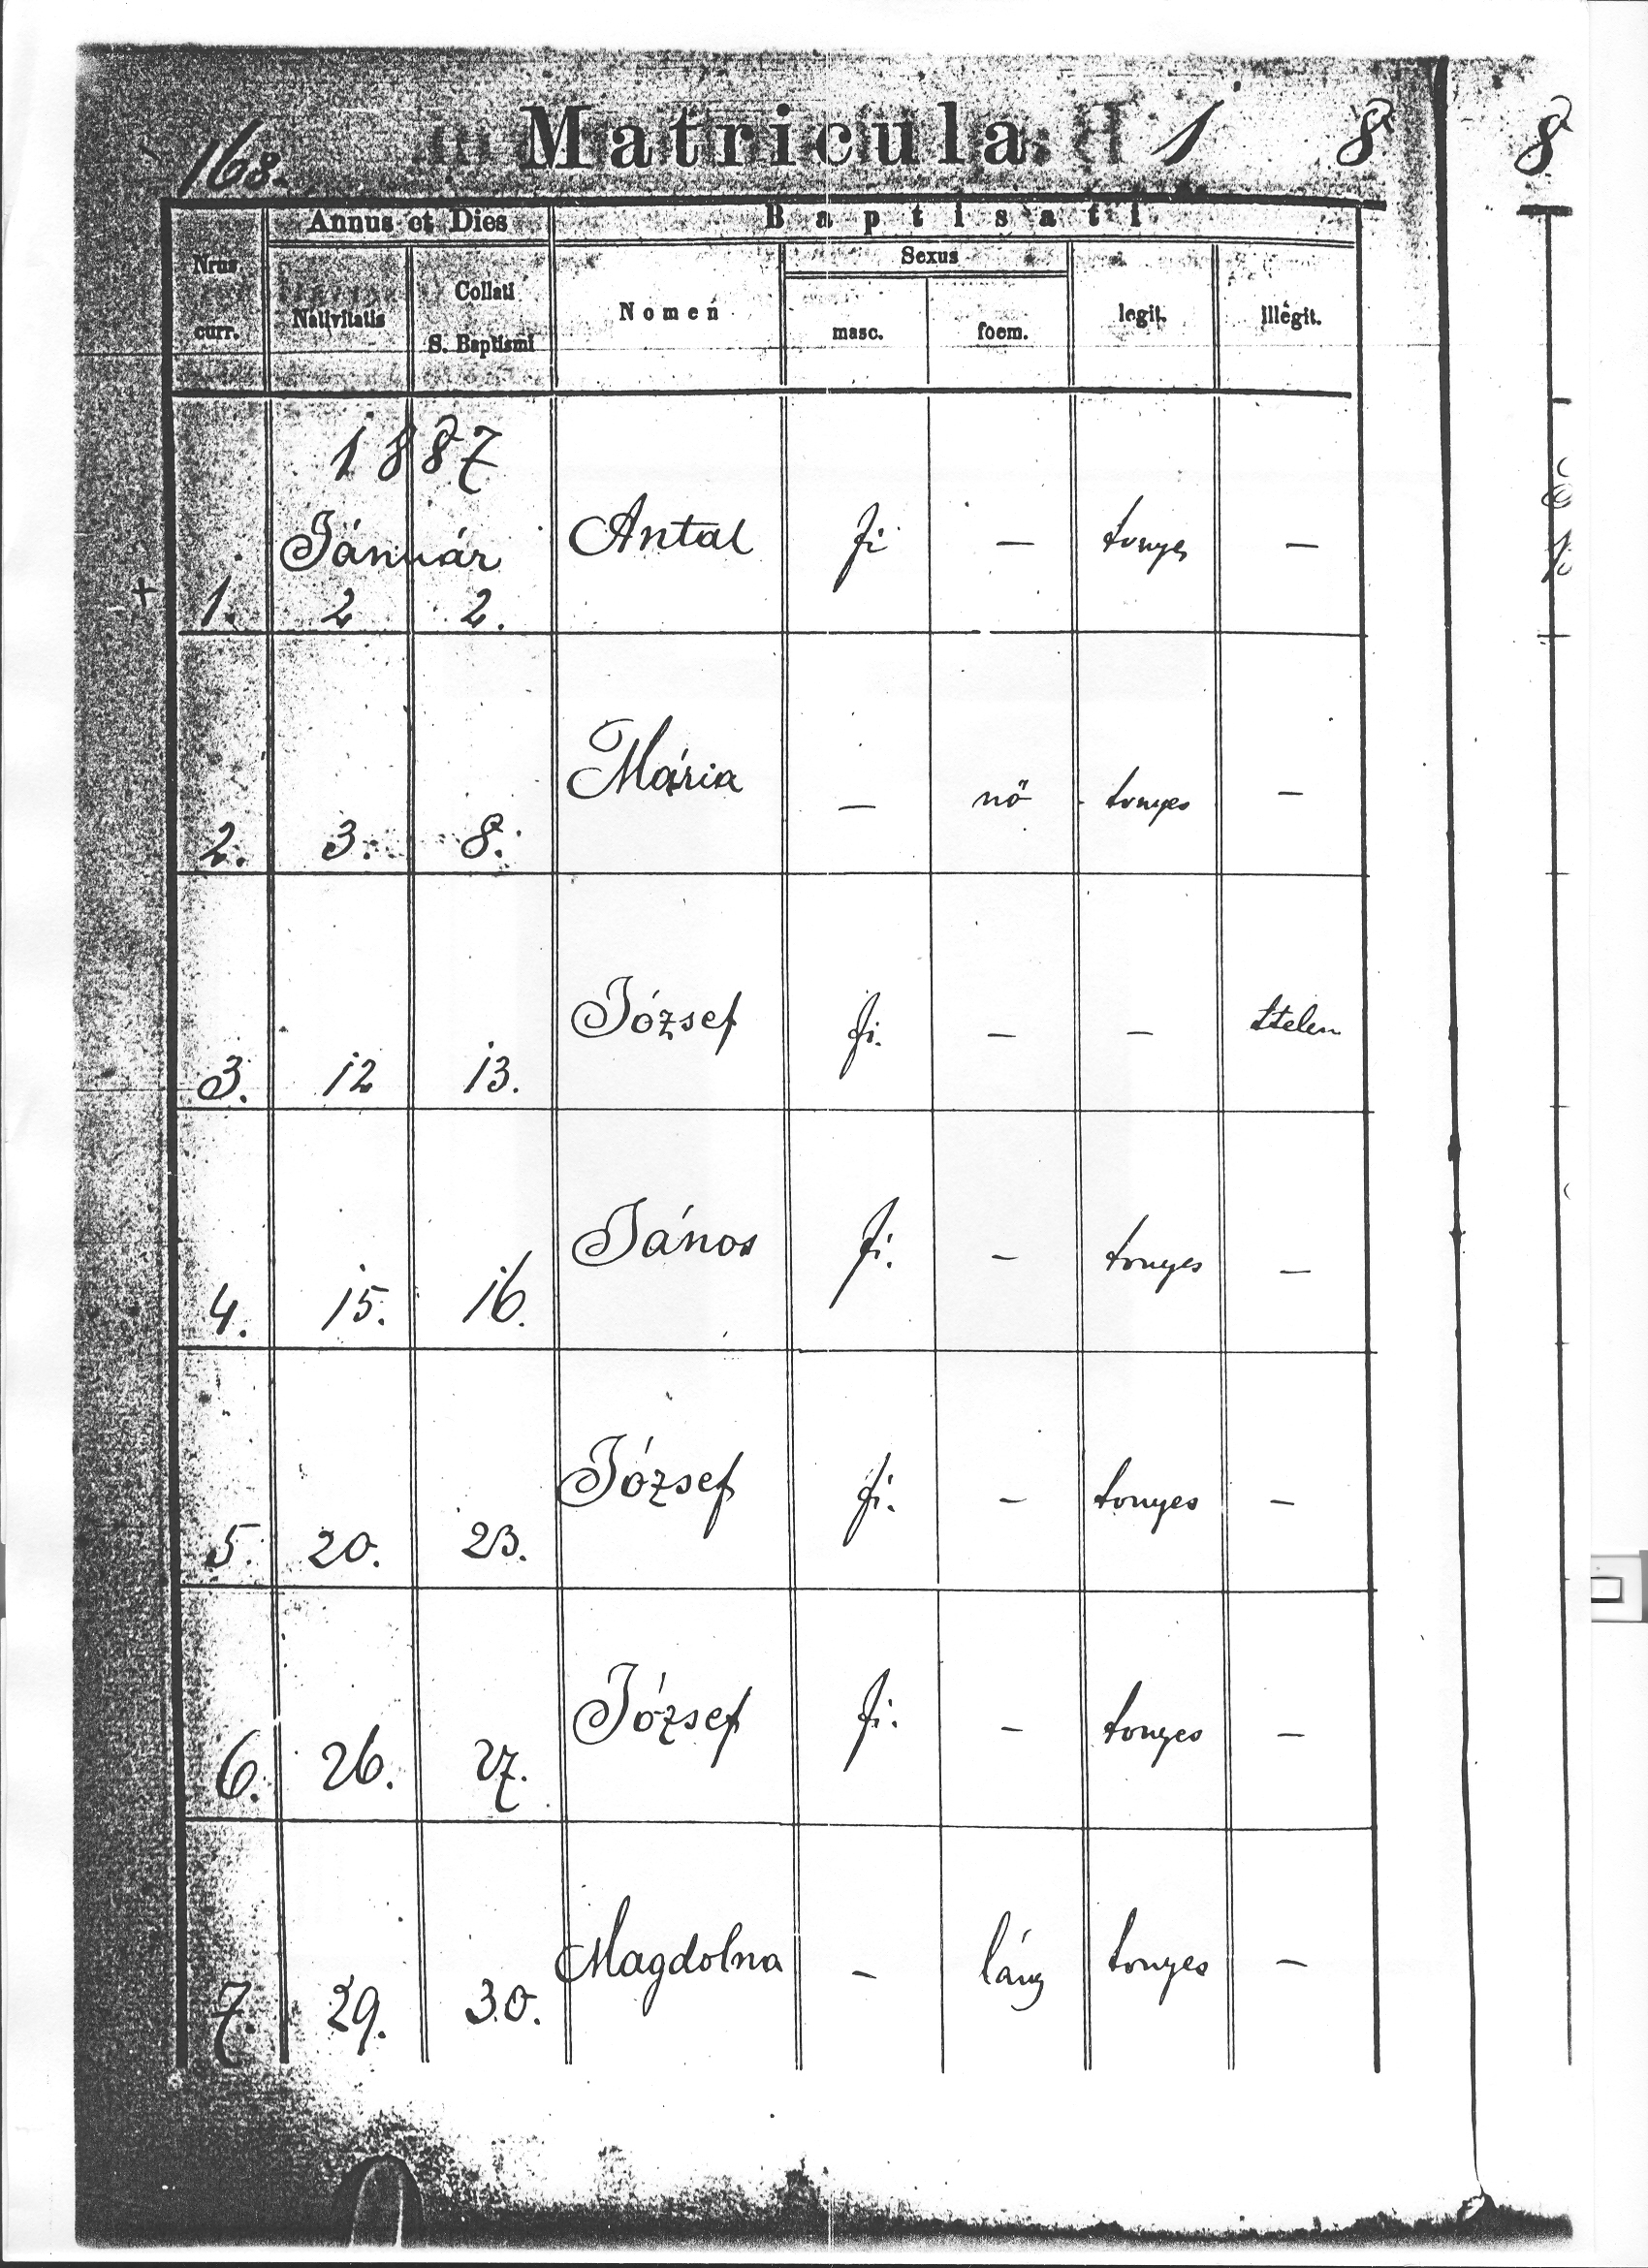 168. Matricula 1 8 8
Annus et Dies Baptisati
Nrus curr. Nativitatis Collati S. Baptismi Nomen Sexus masc. foem. legit. illegit.
1887
Január
+ 1. 2 2. Antal fi — tvnyes —
2. 3. 8. Mária — nö tvnyes —
3. 12 13. József fi. — — ttelen
4. 15. 16. János fi. — tvnyes —
5. 20. 23. József fi. — tvnyes —
6. 26. 27. József fi. — tvnyes —
7. 29. 30. Magdolna — lány tvnyes —